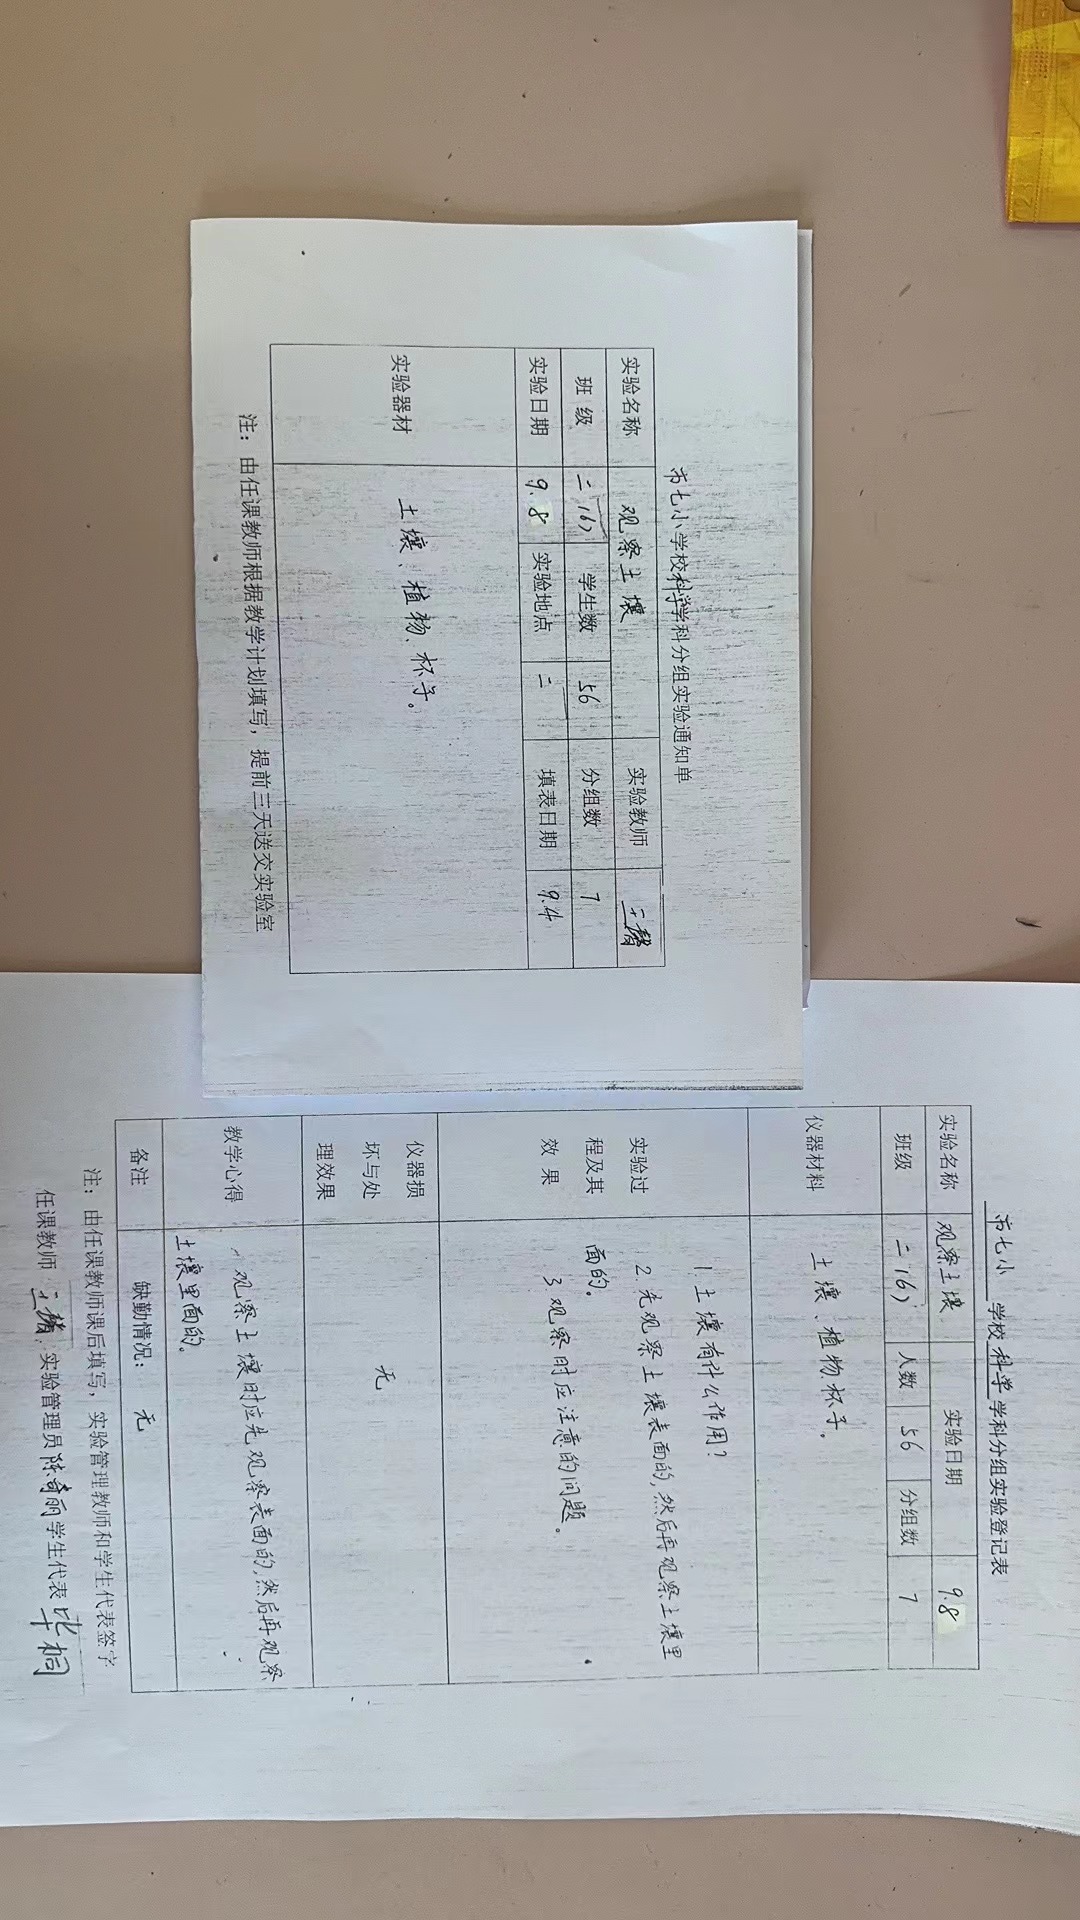 市七小学校科学学科分组实验通知单
实验名称 观察土壤 实验教师
班 级 二(6) 学生数 56 分组数 7
实验日期 9.8 实验地点 二 填表日期 9.4
实验器材 土壤、植物、杯子。
注：由任课教师根据教学计划填写，提前三天送交实验室
市七小 学校 科学 学科分组实验登记表
实验名称 观察土壤 实验日期 9.8
班级 二(6) 人数 56 分组数 7
仪器材料 土壤、植物、杯子。
实验过
程及其
效 果
1. 土壤有什么作用?
2. 先观察土壤表面的,然后再观察土壤里
面的。
3. 观察时应注意的问题。
仪器损
坏与处
理效果
无
教学心得
观察土壤时应先观察表面的,然后再观察
土壤里面的。
备注 缺勤情况： 无
注：由任课教师课后填写，实验管理教师和学生代表签字
任课教师 实验管理员 陈奇丽 学生代表 毕桐